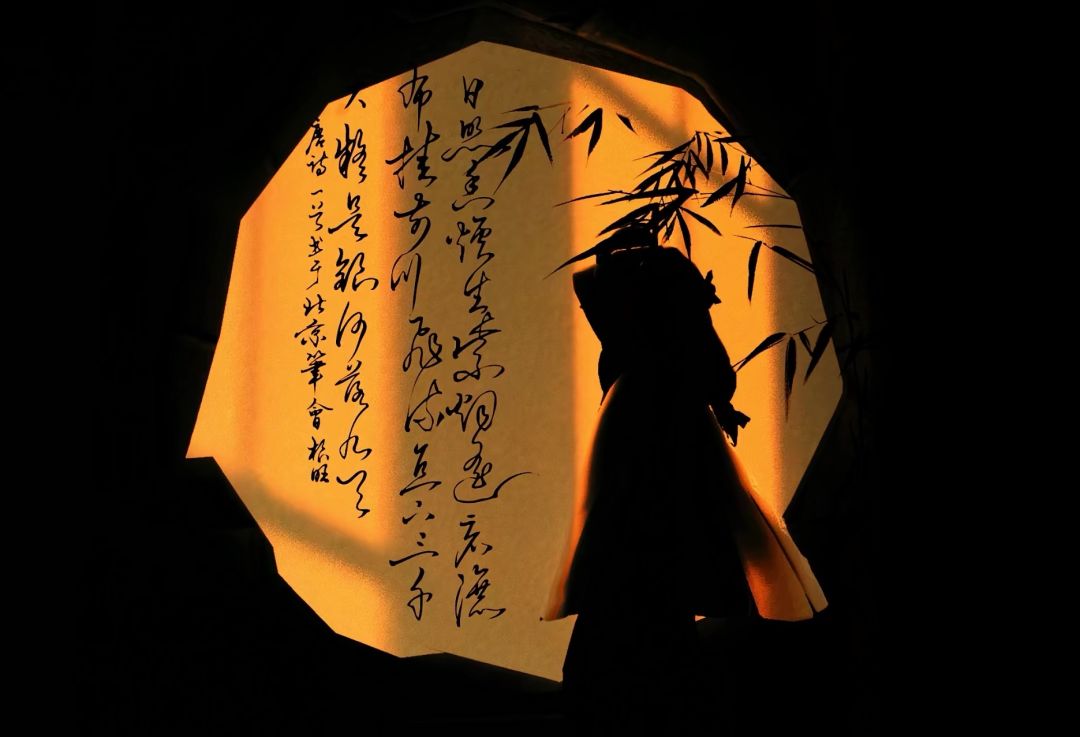 日照香爐生紫烟遥看瀑
布挂前川飛流直下三千
尺疑是銀河落九天
唐诗一首书于北京筆會